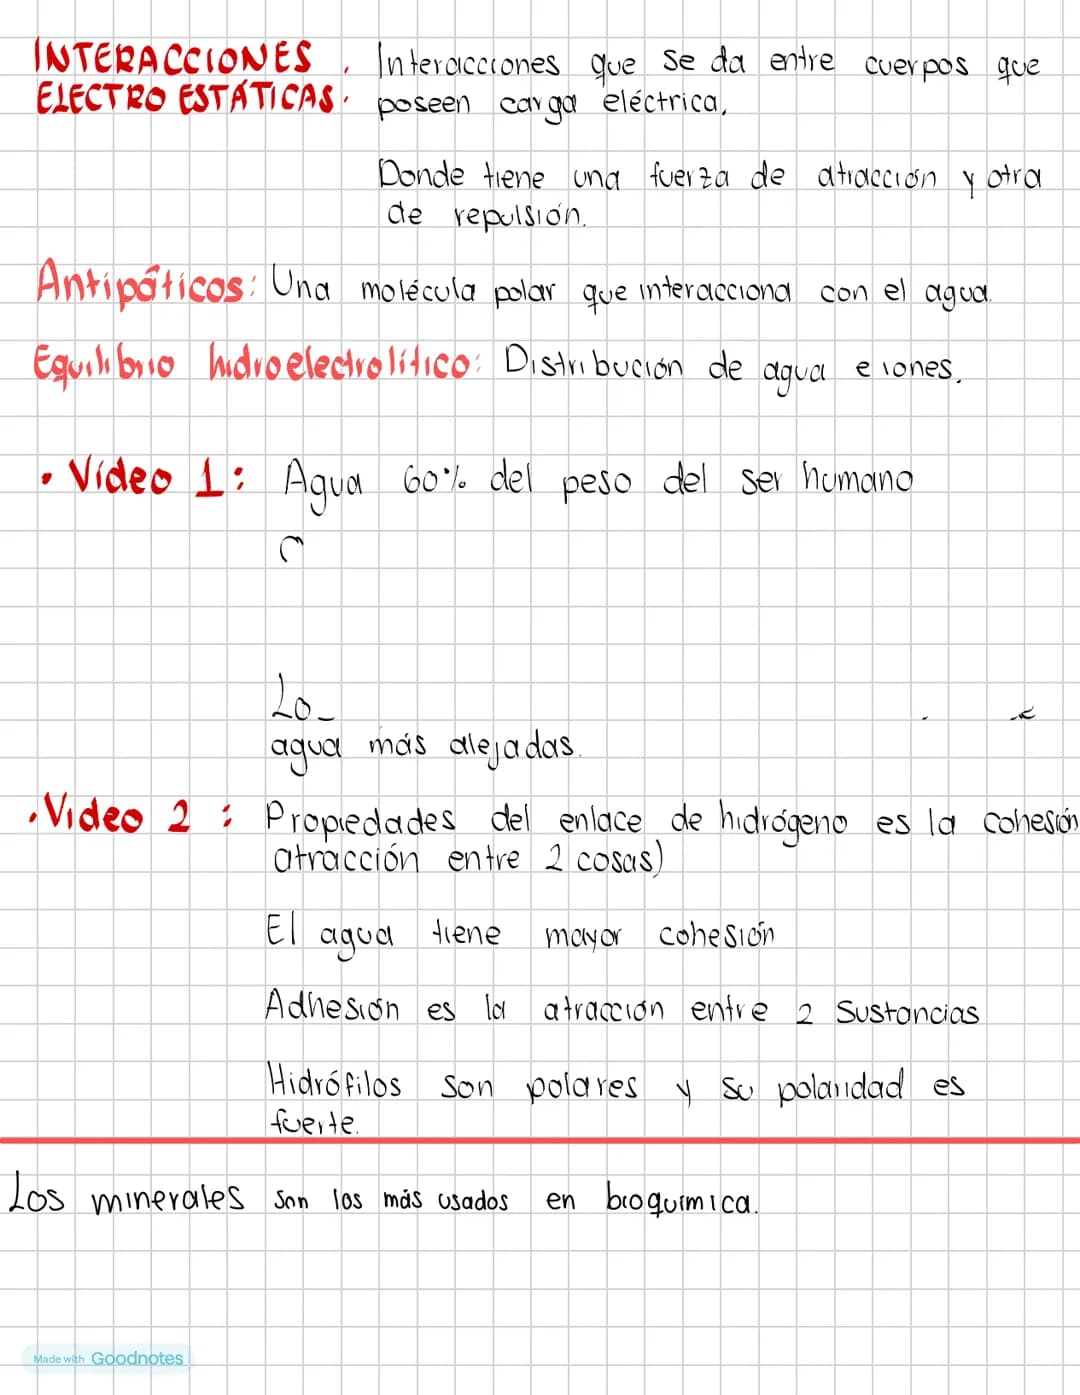 INTERACCIONES
ELECTRO ESTÁTICAS.
Interacciones que se da entre cuerpos que
poseen carga eléctrica,
Donde tiene una fuerza de atracción y otra
de repulsión.
Antipáticos: Una molécula polar que interacciona con el agua.
Equilibrio hidroelectrolítico: Distribución de agua e iones.
• Vídeo 1: Agua 60% del peso del ser humano
Lo
agua más alejadas.
• Video 2: Propiedades del enlace de hidrógeno es la cohesión
atracción entre 2 cosas)
El agua tiene mayor cohesión
Adhesión es la atracción entre 2 sustancias
Hidrófilos son polares y su polaridad es
fuerte.
Los minerales son los más usados en bioquímica.
Made with Goodnotes